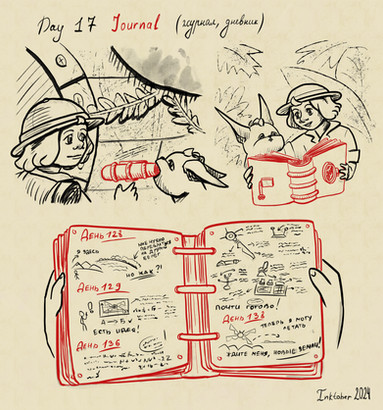 Day 17 Journal (журнал, дневник)
День 123
я здесь
мне нужно
на другой
берег
но как?!
День 129
Есть идея!
День 136
почти готово!
День 138
теперь я могу
летать
ждите меня, новые земли!
Inktober 2024